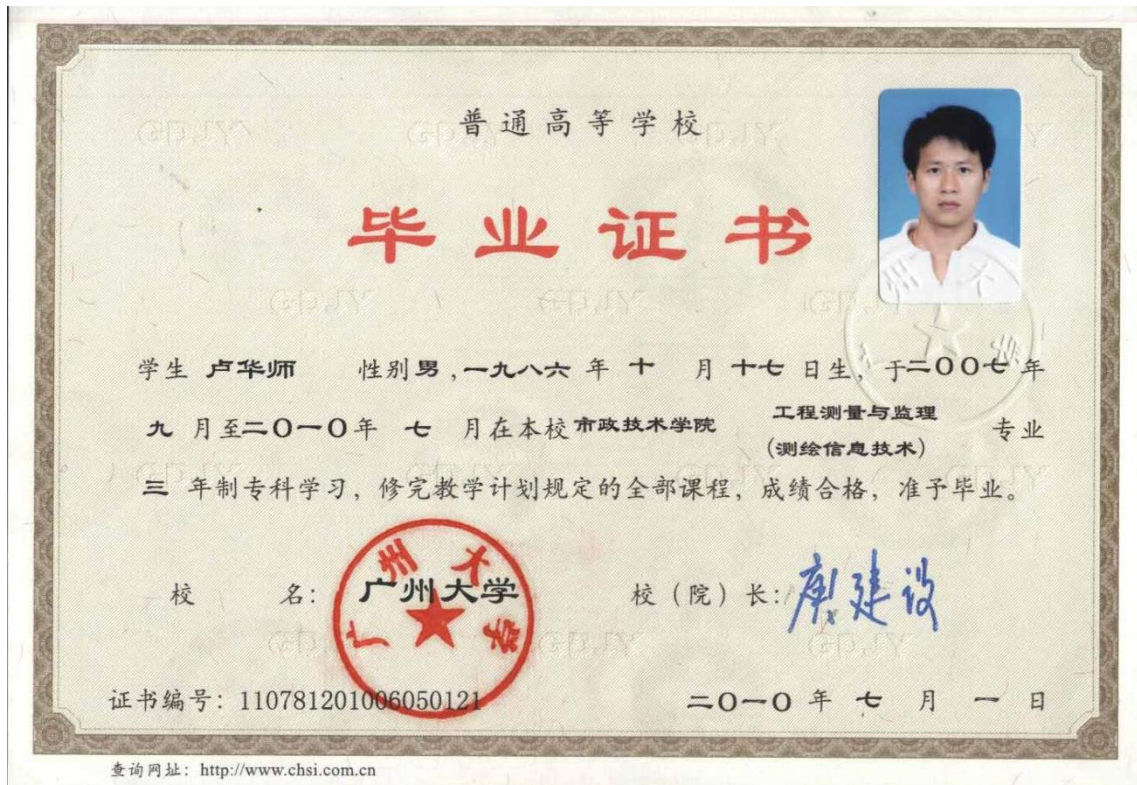 普通高等学校
毕业证书
学生 卢华师 性别男，一九八六 年 十 月 十七 日生，于二〇〇七年
九 月至二〇一〇年 七 月在本校市政技术学院 工程测量与监理 专业
(测绘信息技术)
三 年制专科学习，修完教学计划规定的全部课程，成绩合格，准予毕业。
校 名：广州大学 校（院）长：庾建设
广州大学
证书编号：110781201006050121 二〇一〇 年 七 月 一 日
查询网址：http://www.chsi.com.cn